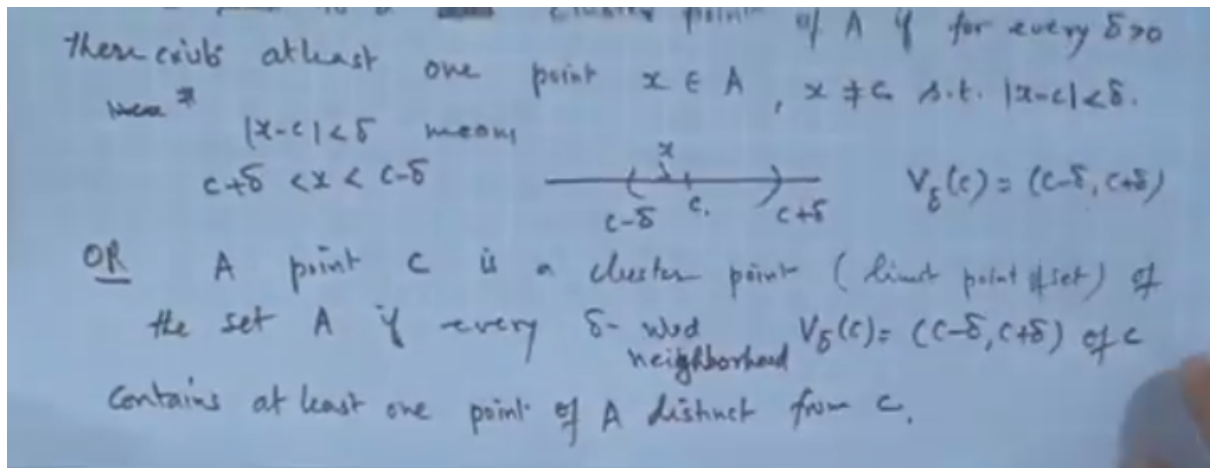 cluster point of A if for every δ>0
there exists atleast one point x ∈ A , x ≠ c s.t. |x-c|<δ.
|x-c|<δ means
c+δ < x < c-δ
x
c-δ c. c+δ
V_δ(c) = (c-δ, c+δ)
OR A point c is a cluster point (limit point of set) of
the set A if every δ- nbd V_δ(c) = (c-δ, c+δ) of c
neighborhood
contains at least one point of A distinct from c.